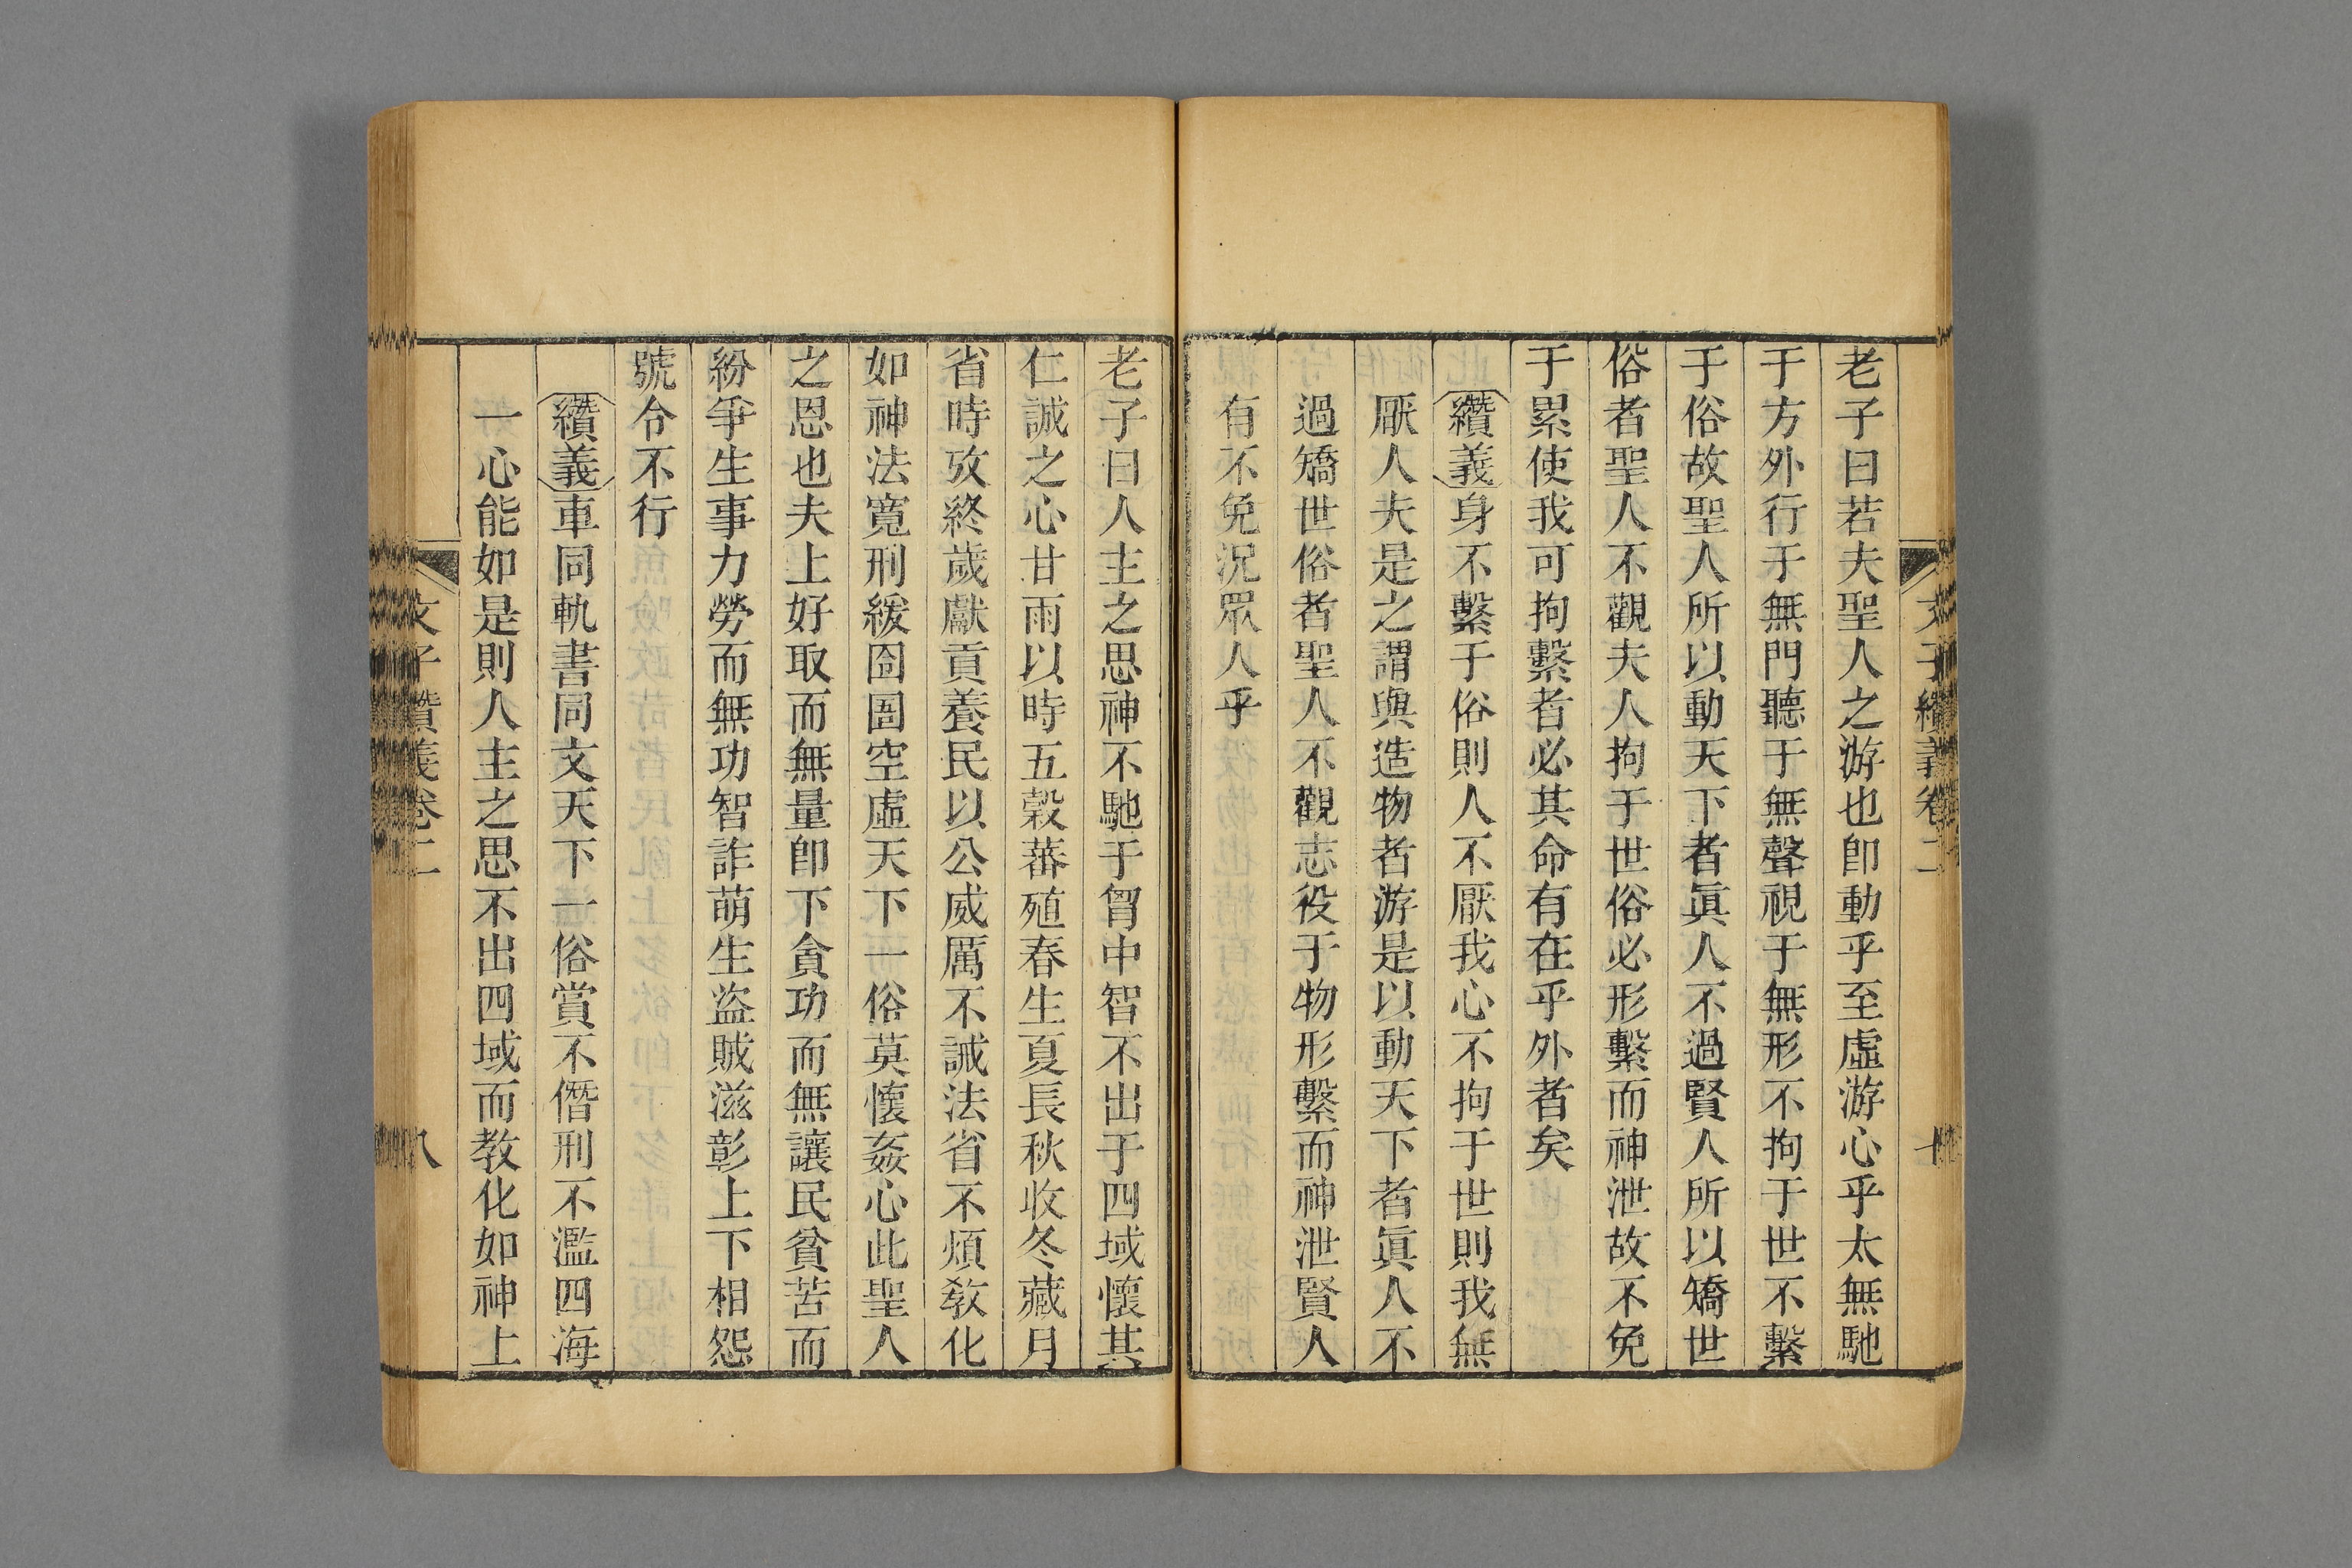 文子纘義卷二
老子曰若夫聖人之游也卽動乎至虛游心乎太無馳
于方外行于無門聽于無聲視于無形不拘于世不繫
于俗故聖人所以動天下者眞人不過賢人所以矯世
俗者聖人不觀夫人拘于世俗必形繫而神泄故不免
于累使我可拘繫者必其命有在乎外者矣
纘義身不繫于俗則人不厭我心不拘于世則我無
厭人夫是之謂與造物者游是以動天下者眞人不
過矯世俗者聖人不觀志役于物形繫而神泄賢人
有不免況眾人乎
老子曰人主之思神不馳于胷中智不出于四域懷其
仁誠之心甘雨以時五穀蕃殖春生夏長秋收冬藏月
省時攷終歲獻貢養民以公威厲不誡法省不煩敎化
如神法寬刑緩囹圄空虛天下一俗莫懷姦心此聖人
之恩也夫上好取而無量卽下貪功而無讓民貧苦而
紛爭生事力勞而無功智詐萌生盜賊滋彰上下相怨
號令不行
纘義車同軌書同文天下一俗賞不僭刑不濫四海
一心能如是則人主之思不出四域而敎化如神上
文子纘義卷二
八